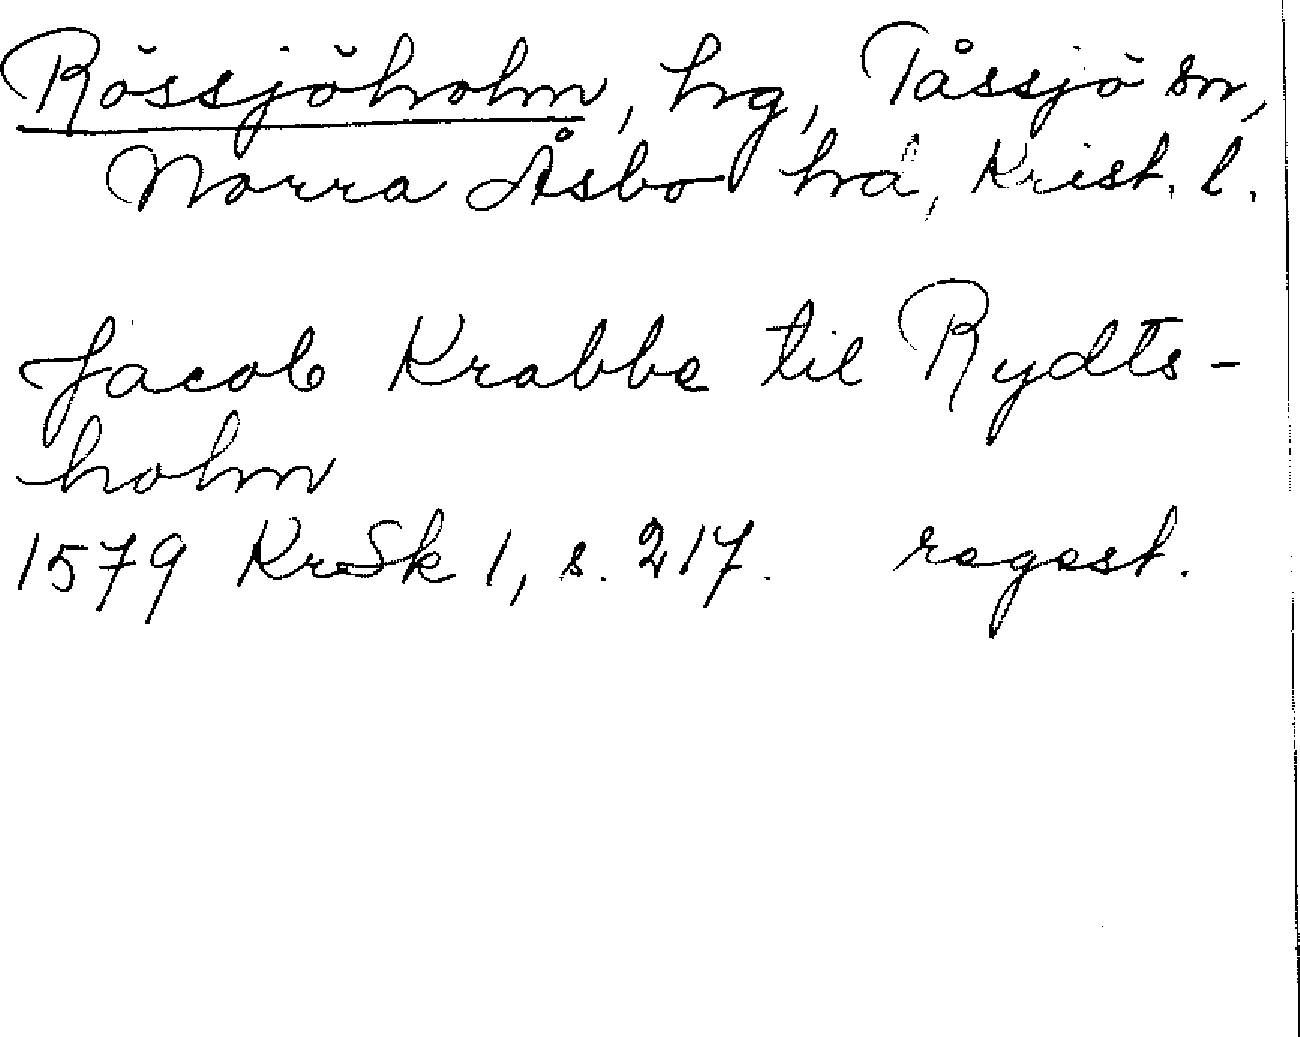 Rössjöholm, hg, Tåssjö sn,
Norra Åsbo hd, Krist. l.
Jacob Krabbe til Rydts-
holm
1579 KrSk 1, s. 217. regest.